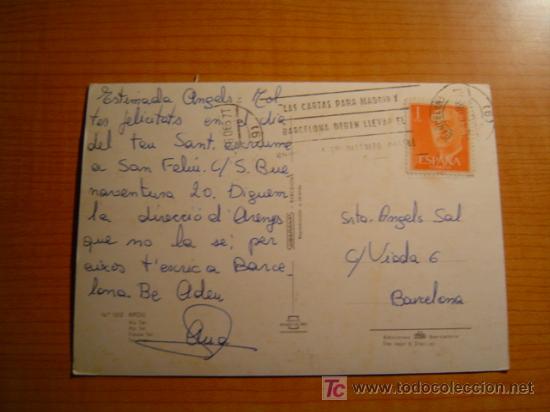 Estimada Àngels: Mol-
tes felicitats en el dia
del teu Sant. escriume
a San Feliu. C/ S. Bue
naventura 20. Diguem
la direcció d'Arenys
que no la se; per
aixos t'escric a Barce
lona. Be Adeu
Ana
Srta. Àngels Sal
C/ Viada 6
Barcelona
LAS CARTAS PARA MADRID Y
BARCELONA DEBEN LLEVAR EL
1
ESPAÑA
TC www.todocoleccion.net